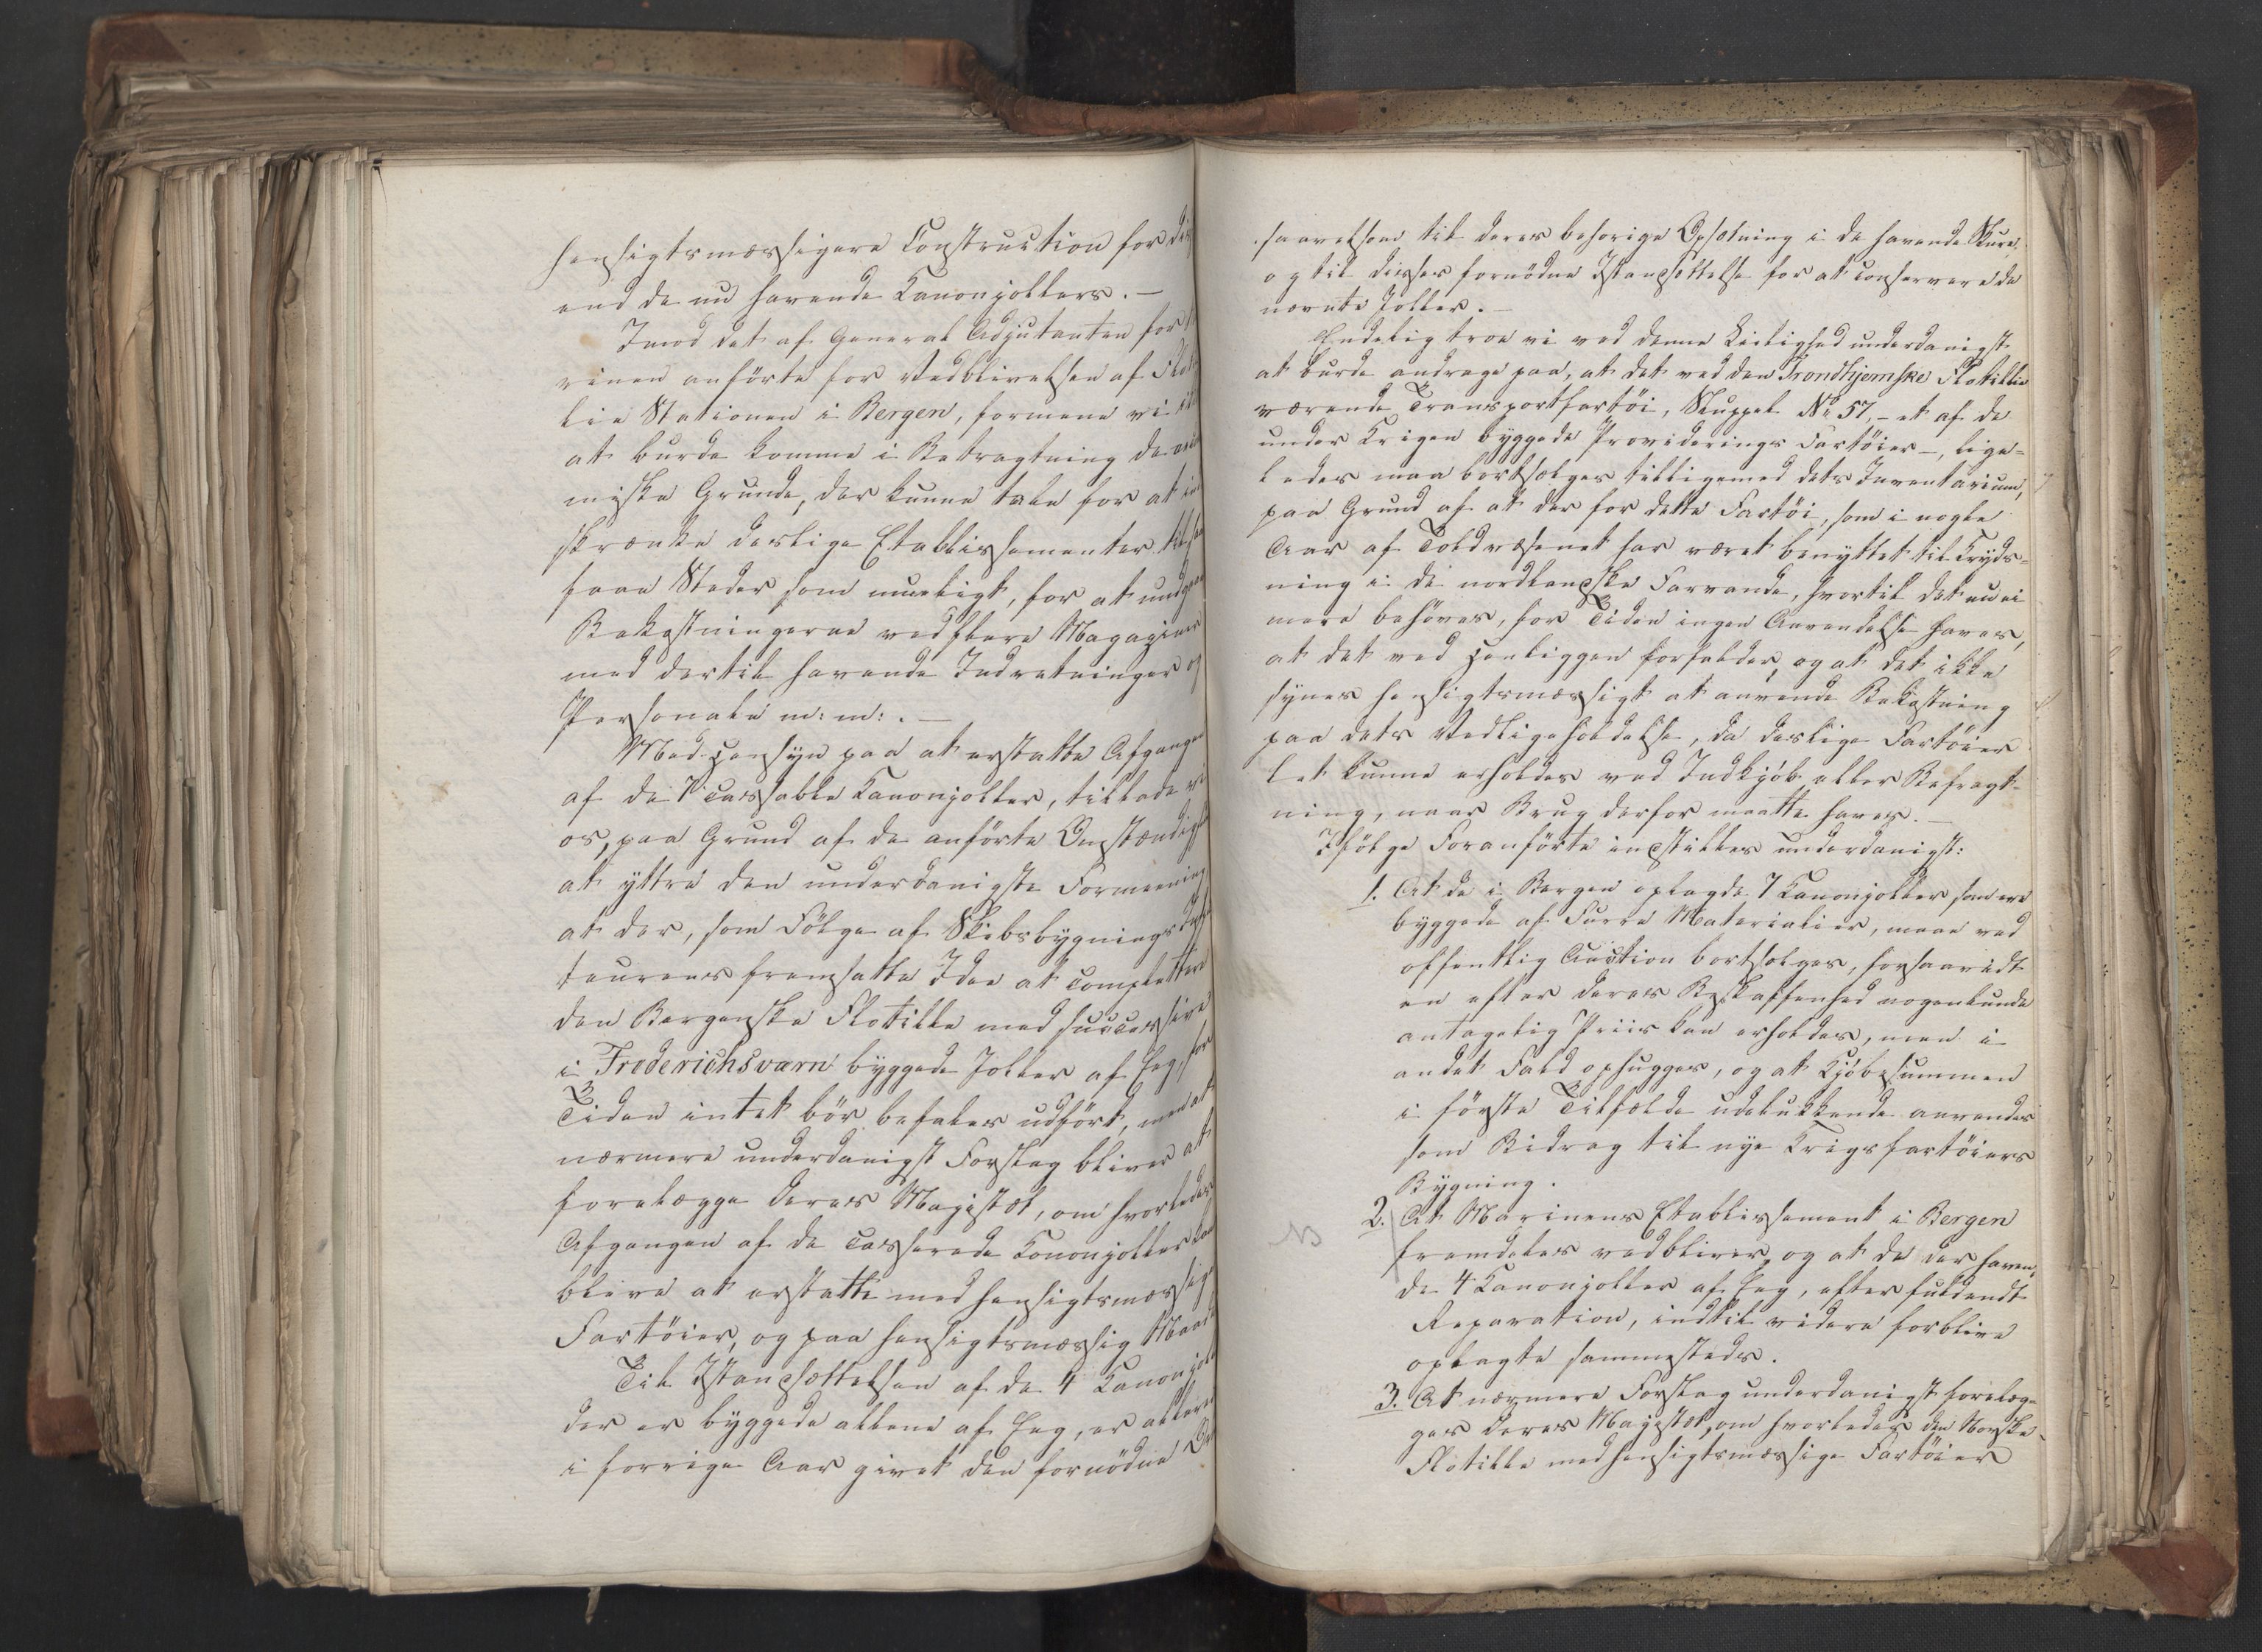 hensigtsmæssigere Construction for dis
end de nu havende Kanonjollers. —
Imod det af General Adjutanten for
rinen anførte for Vedblivelsen af Flot
lie Stationen i Bergen, formene vi
at burde komme i Betragtning de
miske Grunde, der kunne tale for at in
skrænke deslige Etablissementer til saa
faae Steder som mueligt, for at undgaae
Bekostningerne ved flere Magaziner
med dertil havende Indretninger og
Personale m: m: . —
Med Hensyn paa at erstatte Afgangen
af de 7 cassable Kanonjoller, tillade vi
os, paa Grund af de anførte Omstændigh
at yttre den underdanigste Formeening
at der, som Følge af Skibsbygnings
teurens fremsatte Idee at complettere
den Bergenske Flotille med successive
i Frederichsværn byggede Joller af Eeg, for
Tiden intet bør befales udført, men at
nærmere underdanigst Forslag bliver at
forelægge Deres Majestæt, om hvorledes
Afgangen af de casserede Kononjoller kan
blive at erstatte med hensigtsmæssige
Fartøier, og paa hensigtsmæssig Maade
Til Istandsættelsen af de 4 Kanonjoll
der er byggede allene af Eeg, er allere
i forrige Aar givet den fornødne Or
saavelsom til deres behørige Opsætning i de havende Skure,
og til disses fornødne Istandsættelse for at conservere de
nævnte Joller. —
Endelig troe vi ved denne Leilighed underdanigst
at burde andrage paa, at det ved den Trondhjemske Flotillie
værende Transportfartøi, Sluppel No 57, – et af de
under Krigen byggede Providerings Fartøier –, lige=
ledes maa bortsælges tilligemed dets Inventarium,
paa Grund af at der for dette Fartøi, som i nogle
Aar af Toldvæsenet har været benyttet til Kryds=
ning i de nordlandske Farvande, hvortil det nu ei
mere behøves, for Tiden ingen Anvendelse haves,
at det ved Henliggen forfalder, og at det ikke
synes hensigtsmæssigt at anvende Bekostning
paa dets Vedligeholdelse, da deslige Fartøier
let kunne erholdes ved Indkjøb eller Befragt=
ning, naar Brug derfor maatte haves. —
Ifølge Foranførte indstilles underdanigst:
1. At de i Bergen oplagde 7 Kanonjoller som ere
byggede af Furre Materialier, maae ved
offentlig Auction bortsælges, forsaavidt
en efter deres Beskaffenhed nogenlunde
antagelig Priis kan erholdes, men i
andet Fald ophugges, og at Kjøbesummen
i første Tilfælde udelukkende anvendes
som Bidrag til nye Krigsfartøiers
Bygning.
2. At Marinens Etablissement i Bergen
fremdeles vedbliver, og at de der haven,
de 4 Kanonjoller af Eeg, efter fuldendt
Reparation, indtil videre forblive
oplagte sammesteds.
NB
3. At nærmere Forslag underdanigst forelæg=
ges Deres Majestæt, om hvorledes den Norske
Flotille med hensigtsmæssige Fartøier